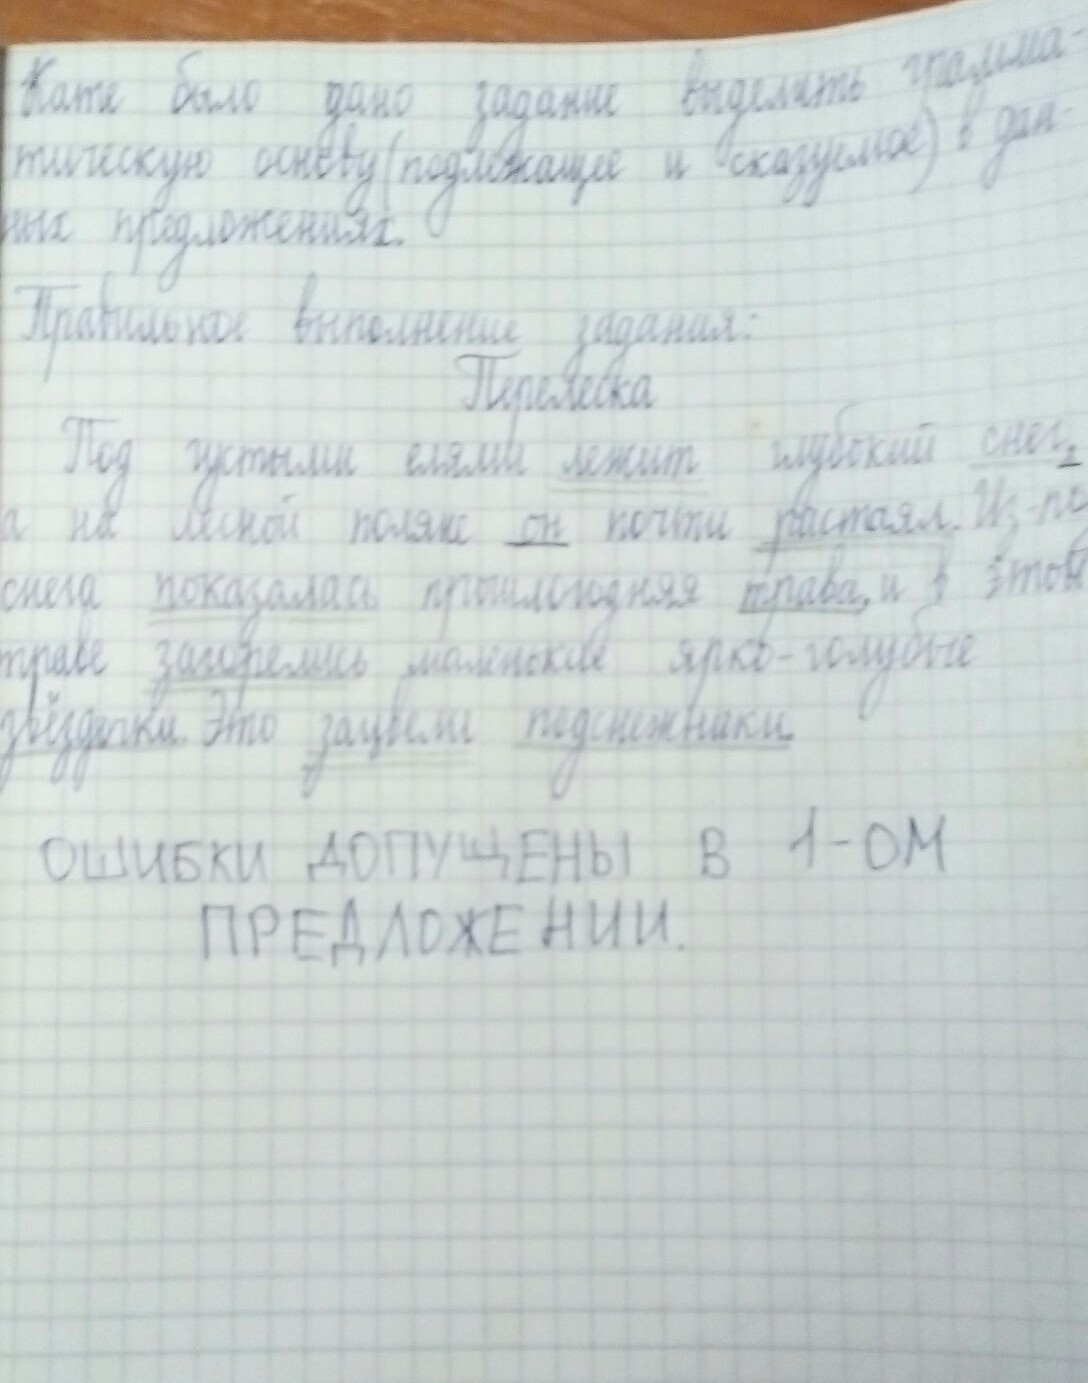 Кате было дано задание выделить грамма-
тическую основу (подлежащее и сказуемое) в дан-
ных предложениях.
Правильное выполнение задания:
Перелеска
Под густыми елями лежит глубокий снег,
а на лесной поляне он почти растаял. Из-под
снега показалась прошлогодняя трава, и в этой
траве загорелись маленькие ярко-голубые
звёздочки. Это зацвели подснежники.
ОШИБКИ ДОПУЩЕНЫ В 1-ОМ
ПРЕДЛОЖЕНИИ.